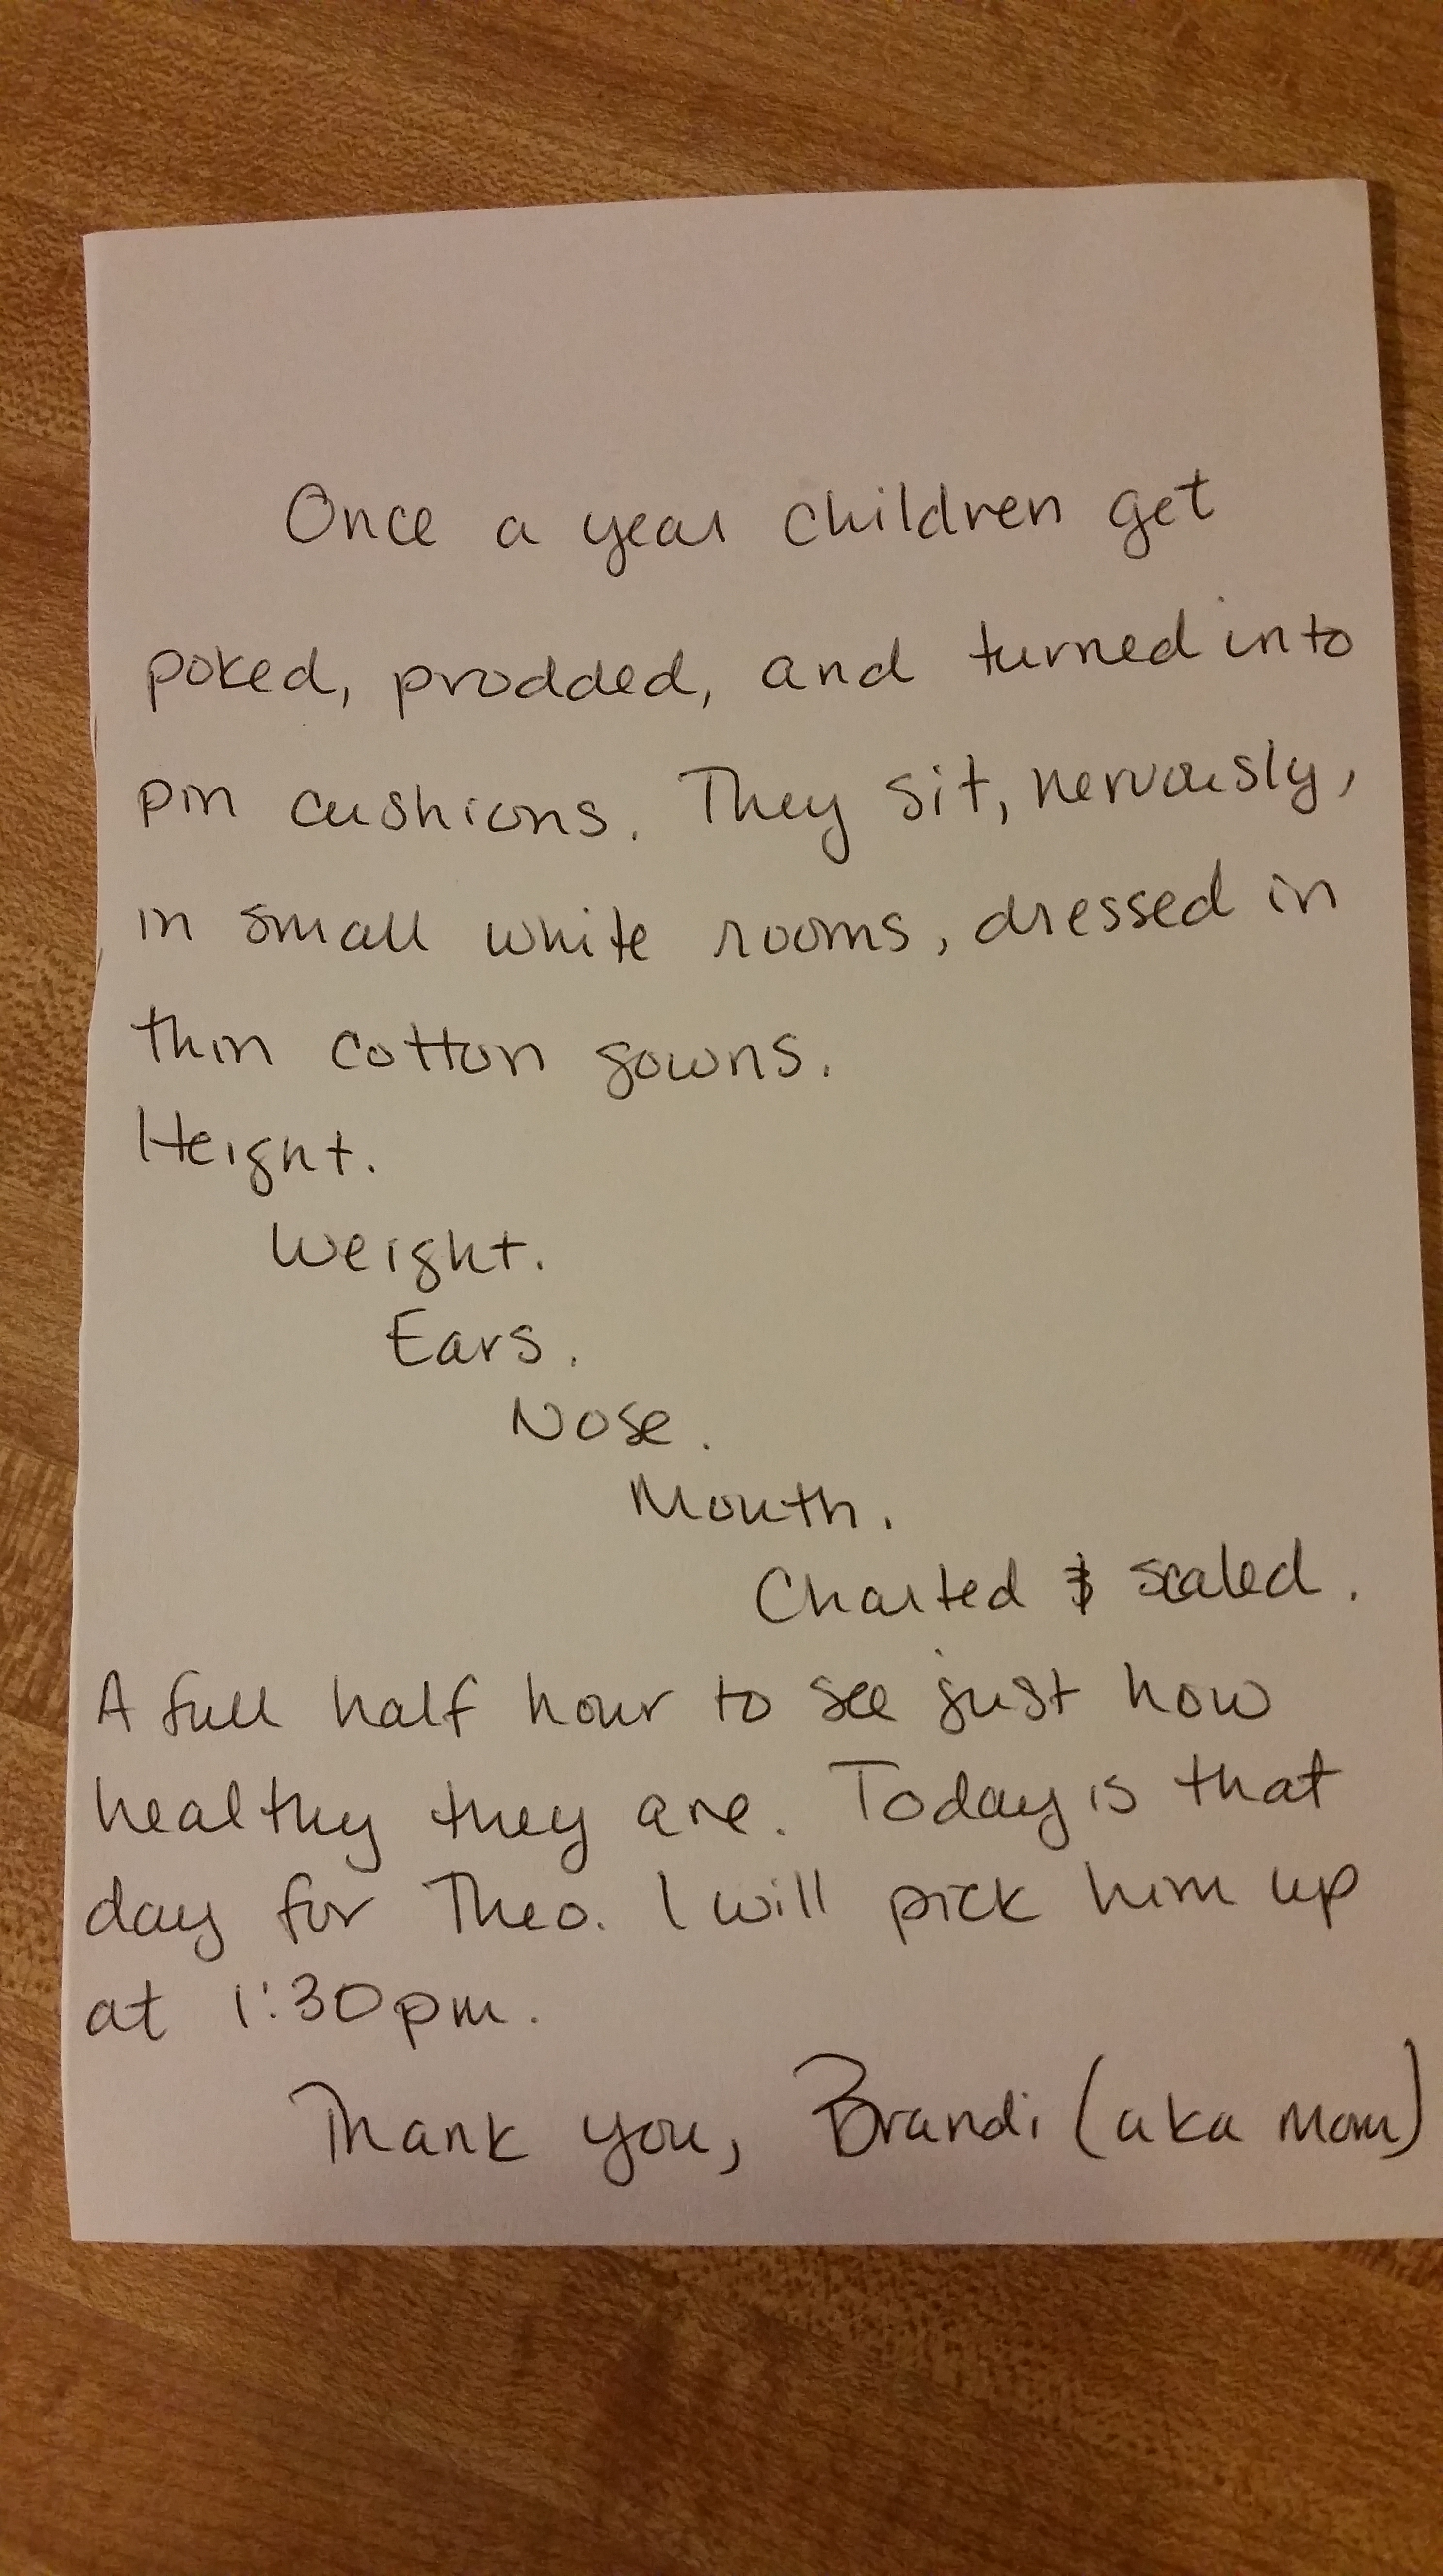 Once a year children get
poked, prodded, and turned into
pin cushions. They sit, nervously,
in small white rooms, dressed in
thin cotton gowns.
Height.
Weight.
Ears.
Nose.
Mouth.
Charted & scaled.
A full half hour to see just how
healthy they are. Today is that
day for Theo. I will pick him up
at 1:30pm.
Thank you, Brandi (aka Mom)